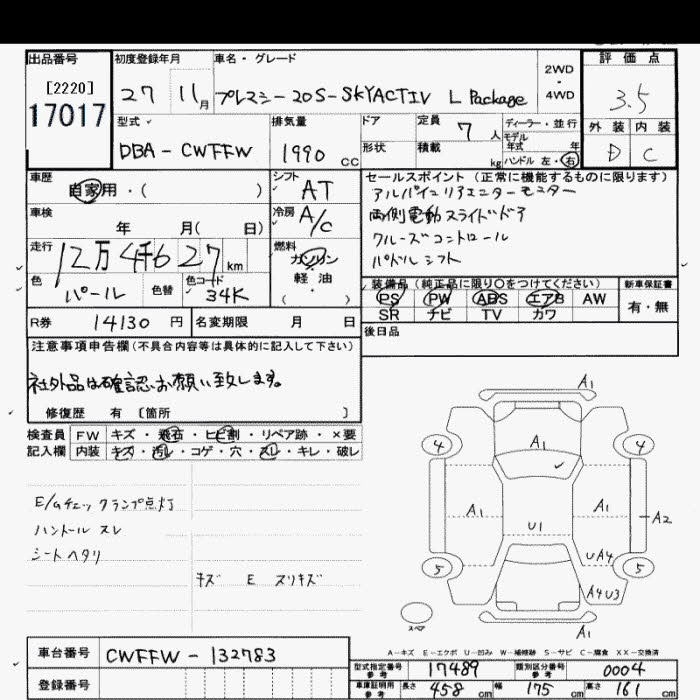 出品番号 初度登録年月 車名・グレード 2WD・4WD 評価点
[2220]
17017
27 11月 プレマシー 20S-SKYACTIV L Package 3.5
型式 排気量 ドア 定員 7人 ディーラー・並行 外装 内装
モデル年式 年
DBA-CWFFW 1990cc 形状 積載 kg ハンドル 左・右 D C
車歴 シフト AT セールスポイント (正常に機能するものに限ります)
自家用・( ) アルパインリアエンターモニター
車検 冷房 A/C 両側電動スライドドア
年 月( 日) クルーズコントロール
走行 12万4千627km 燃料 ガソリン パドルシフト
軽油・( )
色 パール 色替 色コード 34K 装備品 (純正品に限り○をつけてください) 新車保証書
PS PW ABS エアB AW 有・無
SR ナビ TV カワ
R券 14130円 名変期限 月 日 後日品
注意事項申告欄(不具合内容等は具体的に記入して下さい)
社外品は確認、お願い致します。
修復歴 有 〔箇所 〕
検査員 FW キズ・飛石・ヒビ割・リペア跡・×要
記入欄 内装 キズ・汚レ・コゲ・穴・スレ・キレ・破レ
E/Gチェックランプ点灯
ハンドル スレ
シートヘタリ
キズ E スリキズ
A1
4 A1 4
A1 A1 A2
U1
UA4
5 5
A4U3
スペア
A1
A-キズ E-エクボ U-凹み W-補修跡 S-サビ C-腐食 XX-交換済
車台番号 CWFFW-132783
型式指定番号 参考 17489 類別区分番号 参考 0004
登録番号
車庫証明用 参考 長さ 458cm 幅 175cm 高さ 161cm